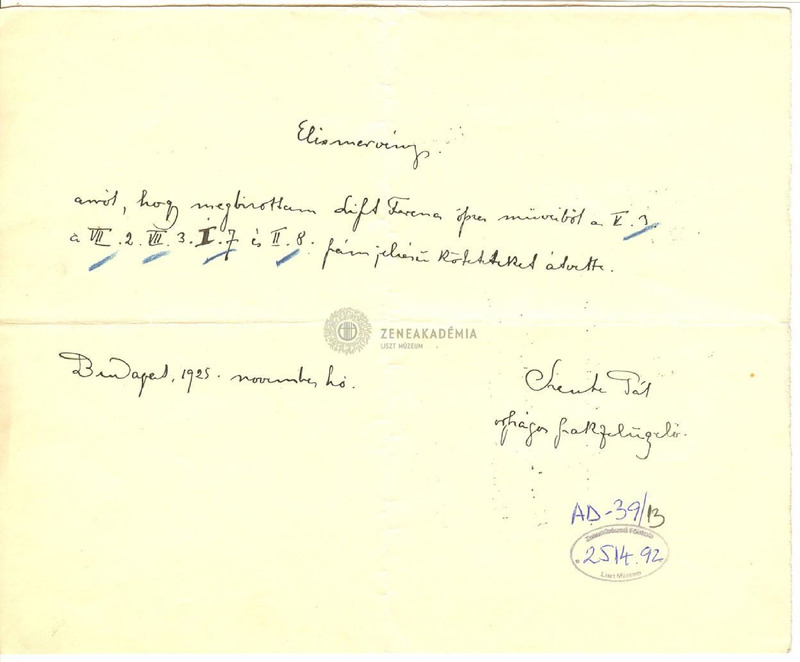 Elismervény.
arról, hogy megbizottam Liszt Ferenc összes műveiből a V. 3.
a VII. 2. VII. 3. I. 7 és II. 8. szám jelzésű köteteket átvette.
ZENEAKADÉMIA
LISZT MÚZEUM
Budapest, 1925. november hó.
országos szakfelügyelő.
AD-39/13
Zeneművészeti Főiskola
2514.92
Liszt Múzeum